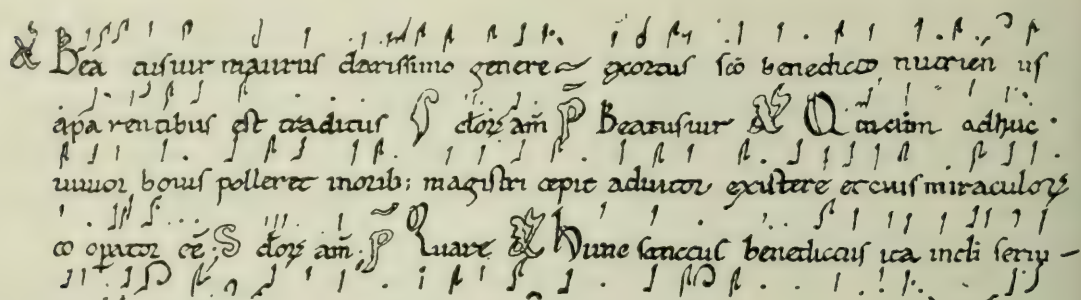 A Bea tusuir maurus clarissimo genere exortus sco benedicto nutrien us
aparentibus est traditus S clor am P Beatusuir A Q cum adhuc
iunior bonis polleret morib; magistri cepit adiutor existere et cuis miraculor
co opator ce; S clor am; P Quare A Hunc sanctus benedictus ita incli seru